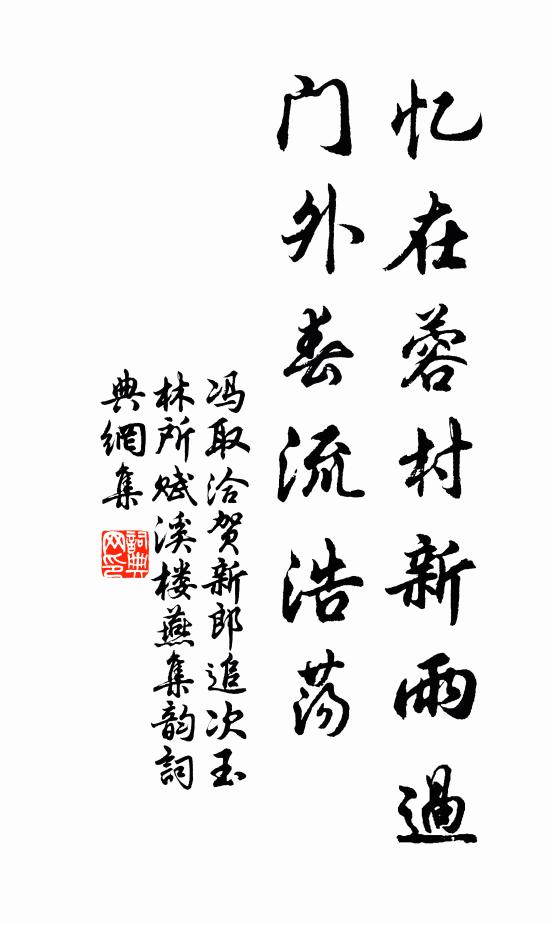 忆在蓉村新雨過
门外春流浩荡
冯取洽贺新郎追次玉
林所赋溪楼燕集韵詞
典網集
詞典网印